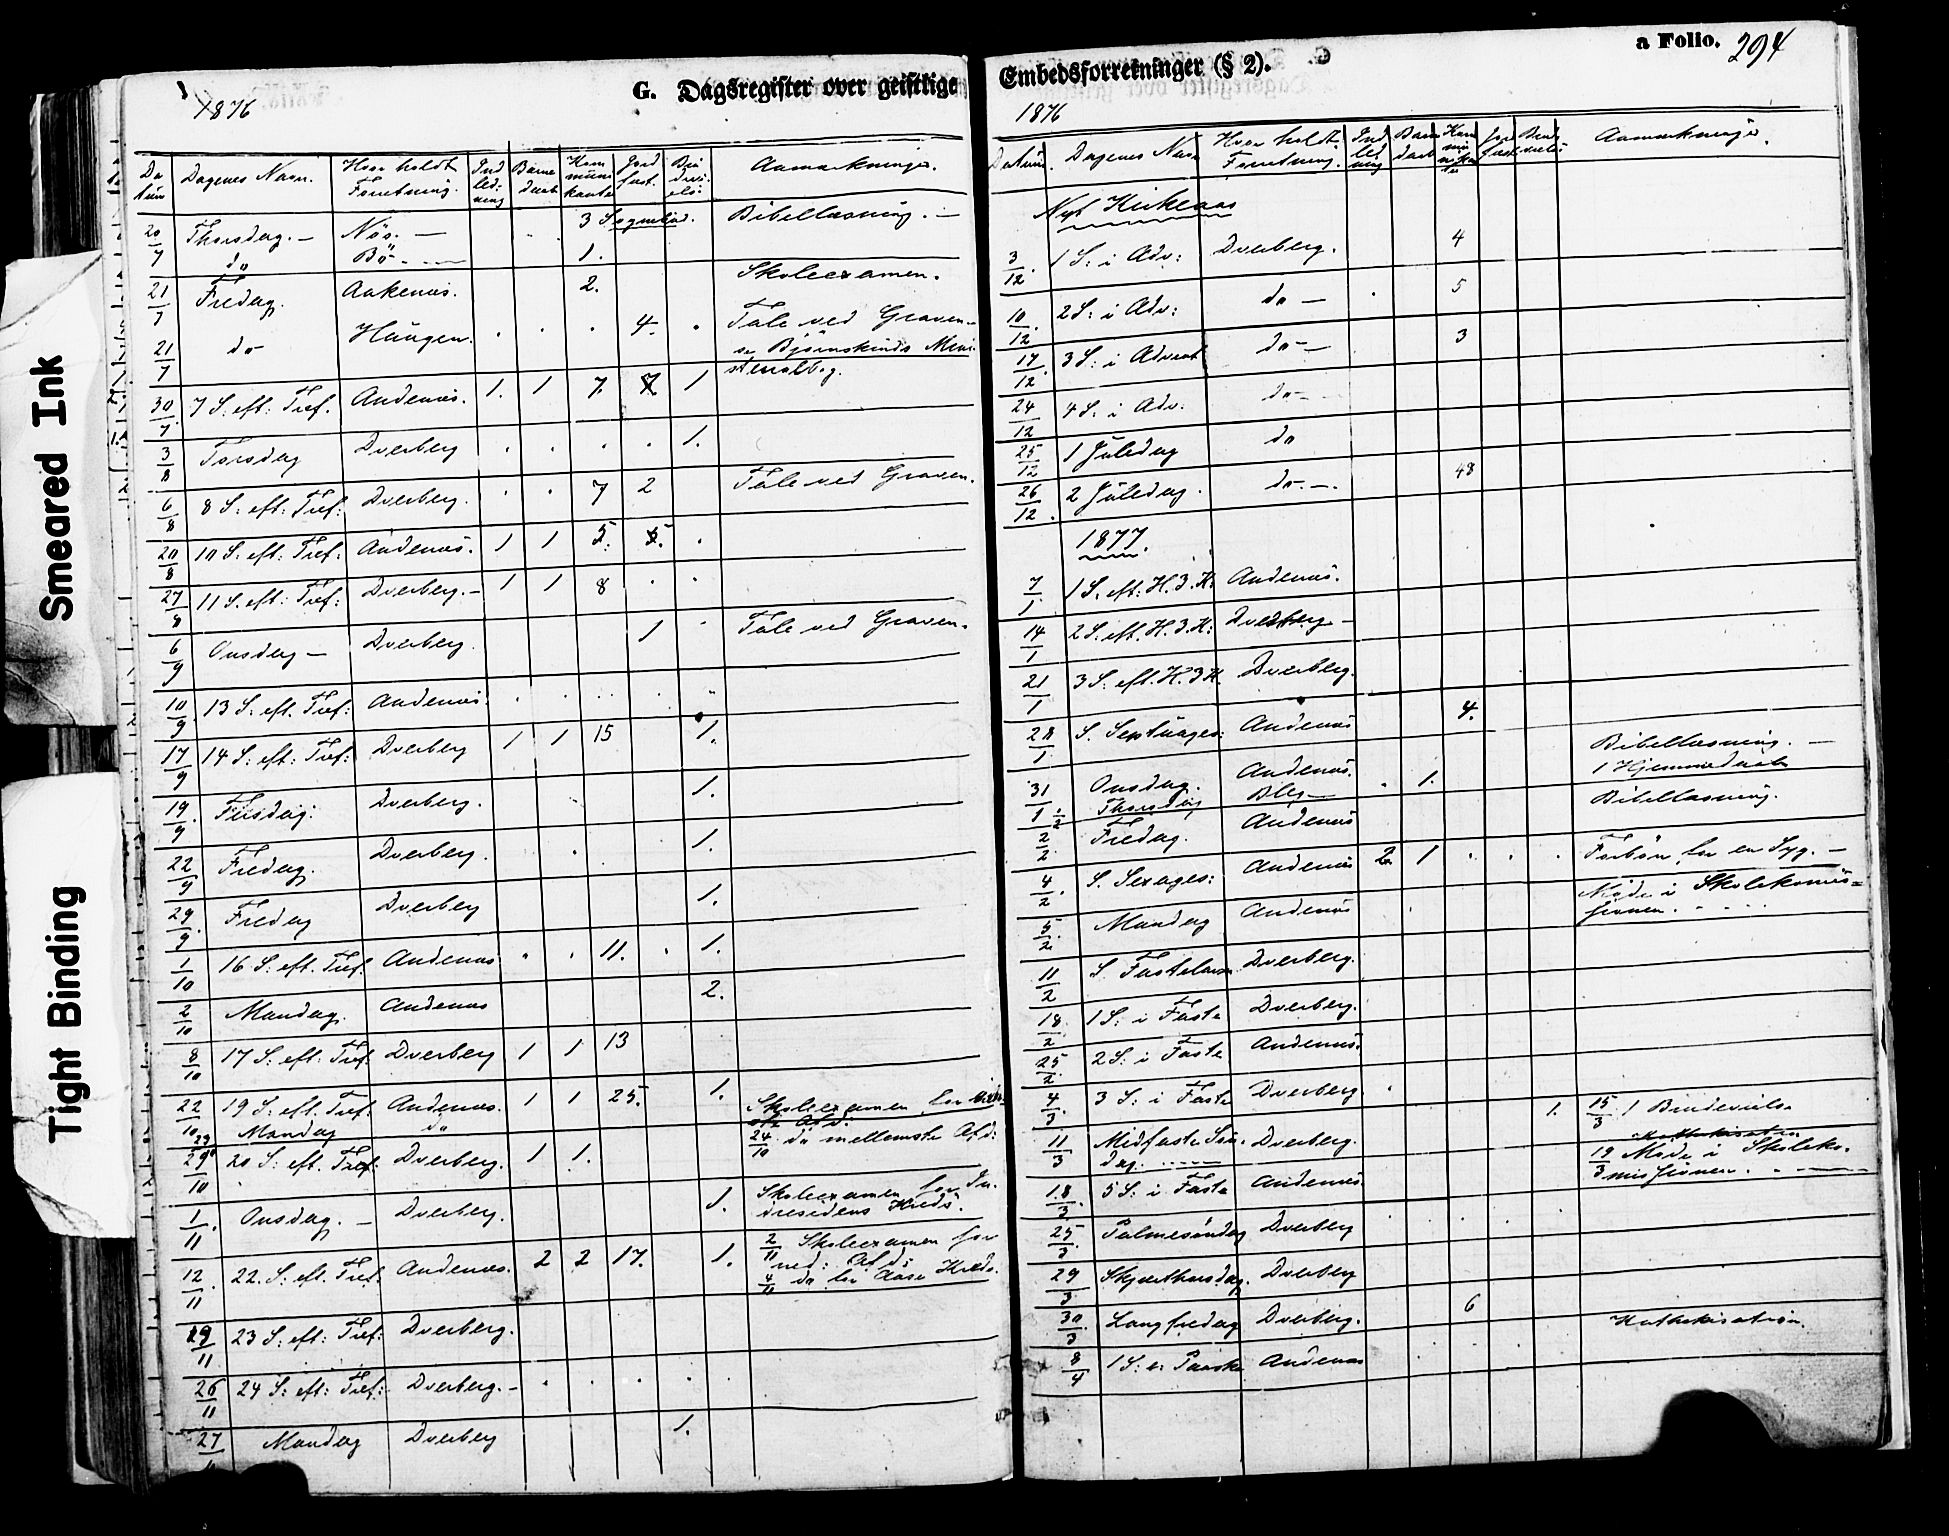 Smeared Ink
Tight Binding
1876
G. Dagsregister over geistlige
Datum Dagenes Navn. Hvor holdt Forretning. Indledning Barnedaab Kommunikanter Jordfæst. Brudevielse Anmærkninger.
20/7 Thorsdag. — Näs. — 3 Sognebud. Bibellæsning. —
do Bö - 1.
21/7 Fredag. Aakenæs. 2. Skoleexamen.
21/7 do Haugen. 4. Tale ved Graven
30/7 7 S. eft: Tref. Andenæs. 1. 1 7. 1
3/8 Torsdag Dverberg 1.
6/8 8 S. eft: Tref: Dverberg. 7 2 Tale ved Graven.
20/8 10 S. eft: Tref: Andenæs. 1 1 5.
27/8 11 S. eft: Tref: Dverberg. — 1 1 8
6/9 Onsdag — Dverberg. 1 Tale ved Graven.
10/9 13 S. eft. Tref: Andenæs.
17/9 14 S: eft: Tref: Dverberg 1 1 15 1.
19/9 Tirsdag: Dverberg. 1.
22/9 Fredag. Dverberg. 1.
29/9 Fredag Dverberg 1.
1/10 16 S. eft. Tref. Andenæs 11. 1.
2/10 Mandag. Andenæs 2.
8/10 17 S: eft: Tref: Dverberg 1 1 13
22/10 19 S. eft. Tref: Andenæs. 1 1 25. 1. Skoleexamen for
23 Mandag do 24/10 do mellemste Afd:
29/10 20 S: eft. Tref. Dverberg. 1 1.
1/11 Onsdag. — Dverberg. 1. Skoleexamen for
Kreds.
12/11 22. S: eft. Tref. Andenæs. 2 2 17. 1. 2/11 Skoleexamen for
ned: Afd:
4/11 do for Aase Kreds.
19/11 23 S: eft: Tref: Dverberg.
26/11 24 S: eft: Tref: Dverberg. -
27 Mandag Dverberg 1.
Embedsforretninger (§ 2).
a Folio. 294
1876
Datum. Dagenes Navn Hvor holdt Forretning. Indledning Barnedaab Kommunikanter Jordfæst Brudevielse Anmærkninger.
Nyt Kirkeaar
3/12 1 S: i Adv: Dverberg. 4
10/12 2 S: i Adv: do — 5
17/12 3 S: i Advent do — 3
24/12 4 S: i Adv: do -
25/12 1 Juledag do
26/12 2 Juledag. do - 48
1877.
7/1 1 S. eft: H. 3. K: Andenæs.
14/1 2 S. eft. H. 3. K: Dverberg —
21/1 3 S: eft. H. 3 K. Dverberg.
28/1 S. Septuages: Andenæs 4.
31/1 Onsdag. Andenæs. 1. Bibellæsning. —
1/2 Thorsdag Bleg — 1 Hjemmedaab
2/2 Fredag. Andenæs Bibellæsning.
4/2 S. Sexages: Andenæs 2 1 Forbön for en Syg. —
5/2 Mandag Andenæs Möde i Skolekomis=
sionen.
11/2 S. Fastelavn Dverberg.
18/2 1 S: i Faste Dverberg.
25/2 2 S: i Faste Andenæs.
4/3 3 S: i Faste Dverberg.
11/3 Midfaste Sön- Dverberg. 1. 15/3 1 Brudevielse
dag. Kathekisation
18/3 5 S: i Faste Andenæs 19/3 Möde i Skoleko-
missionen.
25/3 Palmesöndag Dverberg
29/3 Skjærthorsdag. Dverberg
30/3 Langfredag Dverberg. 6
8/4 1 S: e: Paaske Andenæs Kathekisation.